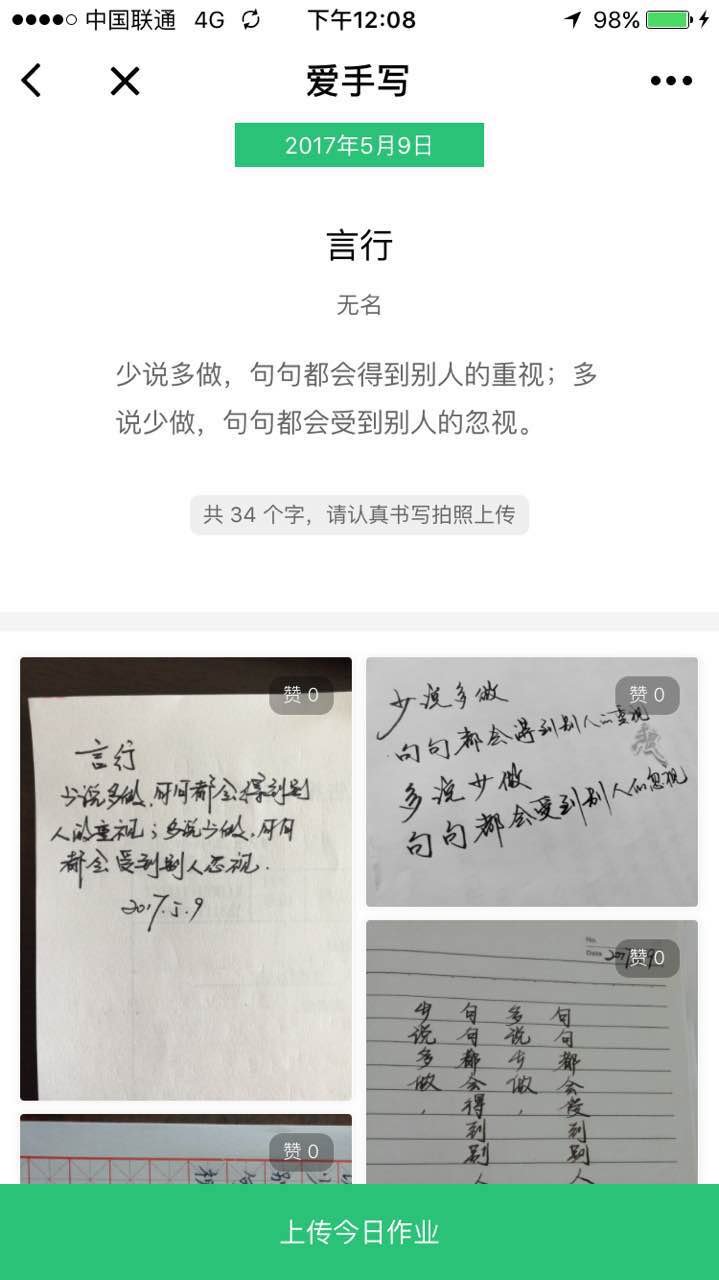 中国联通 4G 下午12:08 98%
爱手写
2017年5月9日
言行
无名
少说多做，句句都会得到别人的重视；多
说少做，句句都会受到别人的忽视。
共 34 个字，请认真书写拍照上传
赞 0
言行
少说多做，句句都会得到别
人的重视；多说少做，句句
都会受到别人忽视.
2017.5.9
赞 0
少说多做
句句都会得到别人的重视
多说少做
句句都会受到别人的忽视
赞 0
No.
Date
少说多做，
句句都会得到别人
多说少做，
句句都会受到别人
赞 0
上传今日作业